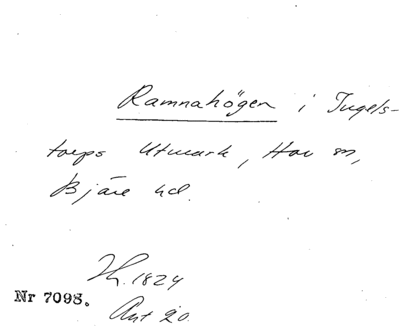 Ramnahögen i Ingels-
torps Utmark, Hov sn,
Bjäre hd.
Th. 1824
Nr 7098.
Ant 20.